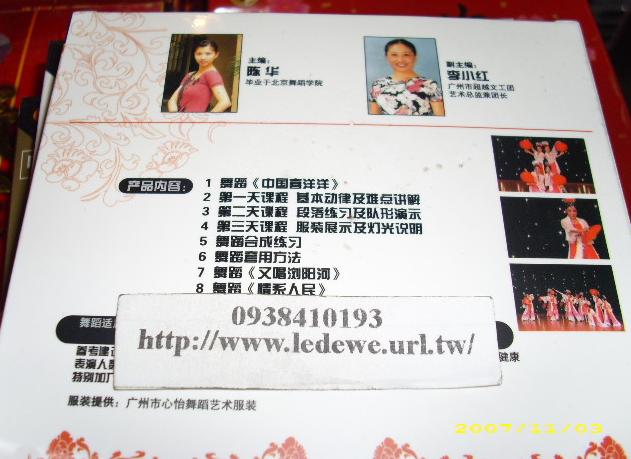 主编：
陈华
毕业于北京舞蹈学院
副主编：
李小红
广州市超越文工团
艺术总监兼团长
产品内容：
1 舞蹈《中国喜洋洋》
2 第一天课程 基本动律及难点讲解
3 第二天课程 段落练习及队形演示
4 第三天课程 服装展示及灯光说明
5 舞蹈合成练习
6 舞蹈套用方法
7 舞蹈《又唱浏阳河》
8 舞蹈《情系人民》
0938410193
http://www.ledewe.url.tw/
舞蹈适
参考建
表演人
特别加
健康
服装提供：广州市心怡舞蹈艺术服装
2007/11/03